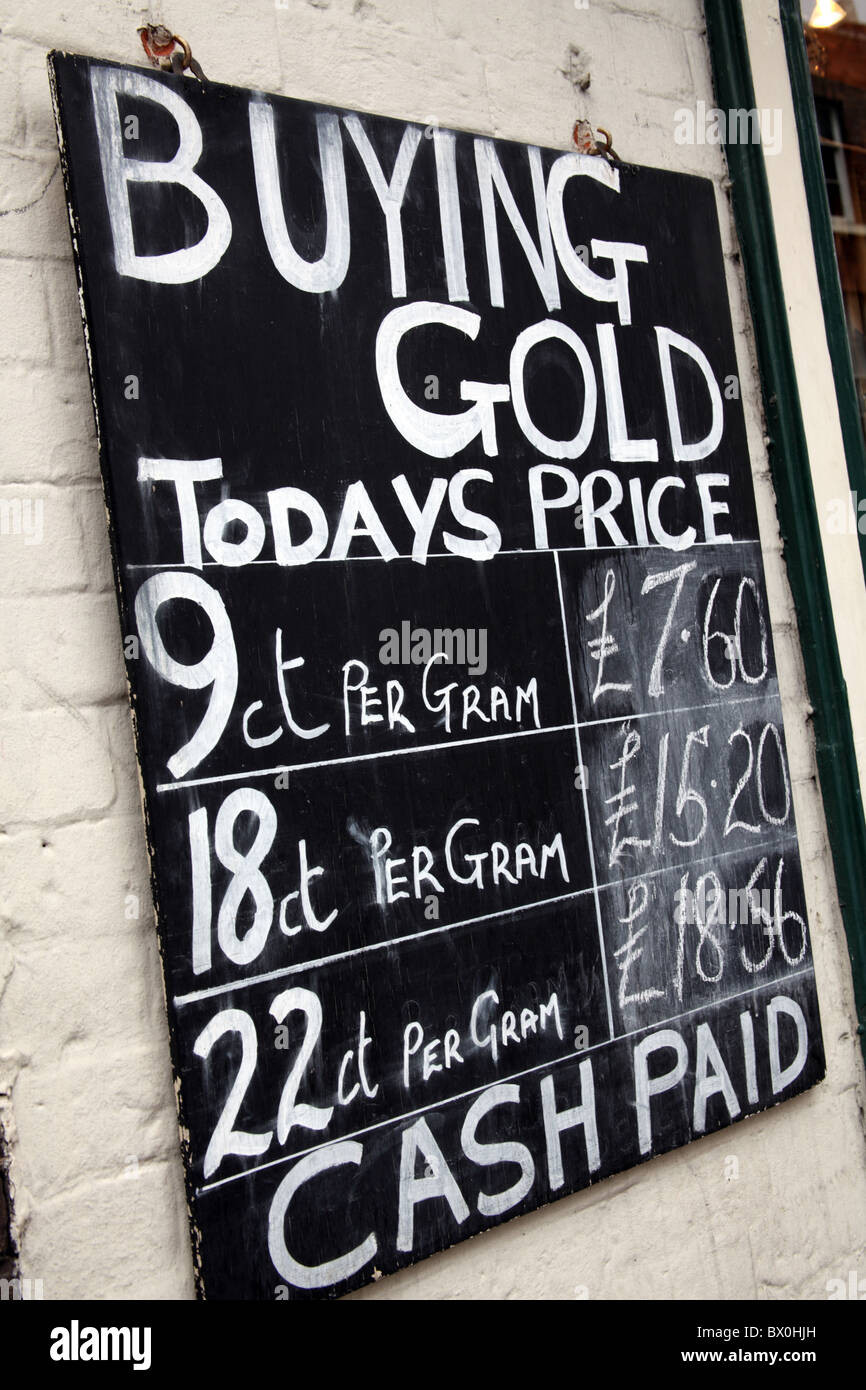 BUYING
GOLD
TODAYS PRICE
9ct PER GRAM £7.60
18ct PER GRAM £15.20
22ct PER GRAM £18.56
CASH PAID
alamy
Image ID: BX0HJH
www.alamy.com